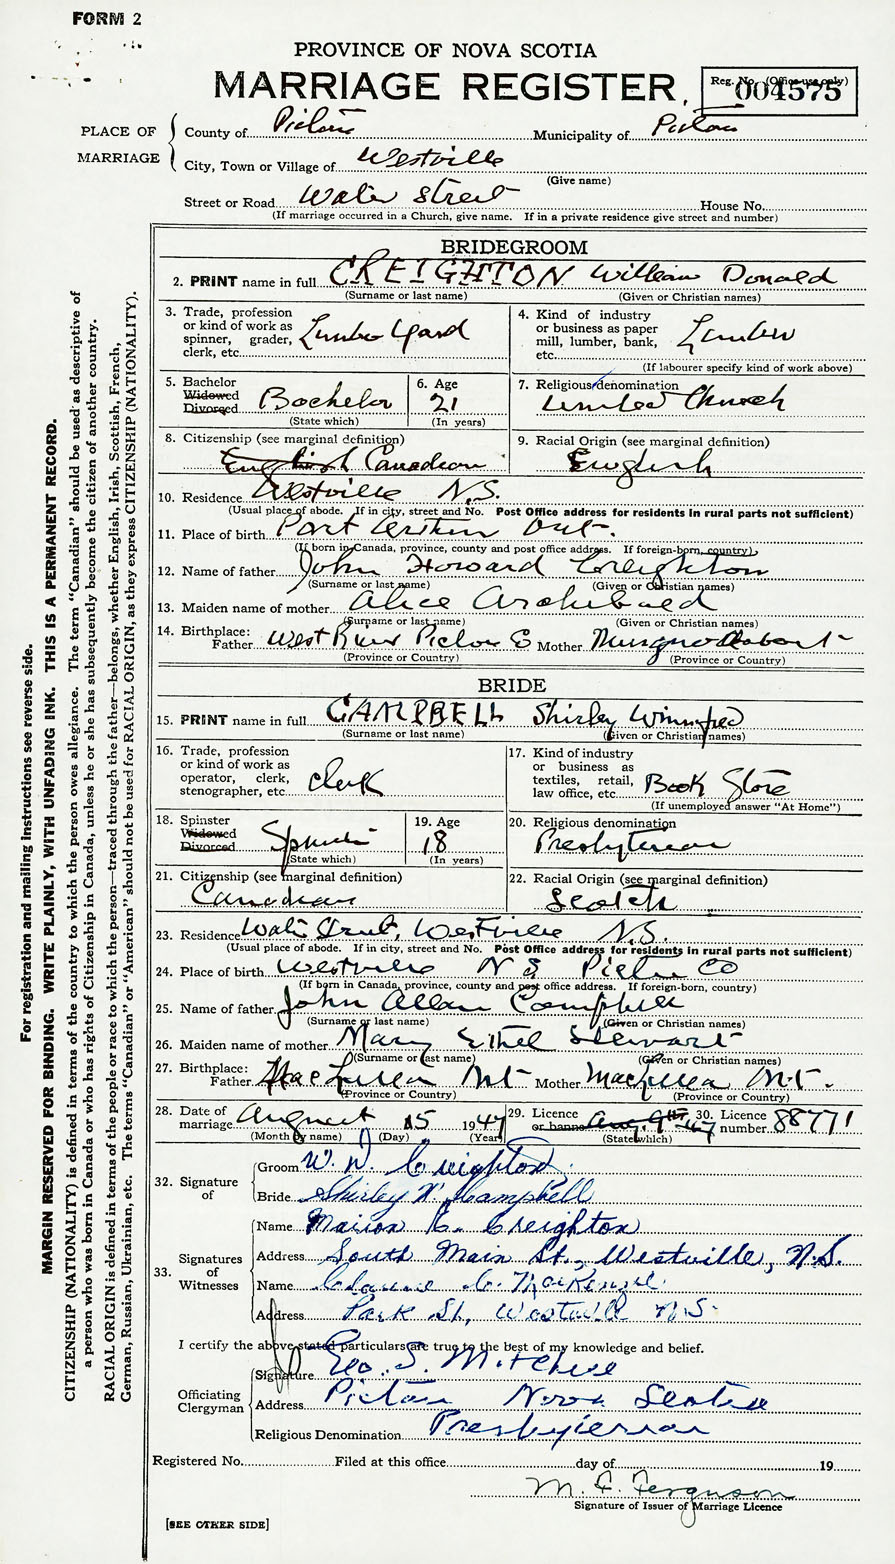 FORM 2
PROVINCE OF NOVA SCOTIA
MARRIAGE REGISTER
Reg. No. (Office use only)
004575
PLACE OF MARRIAGE
County of Pictou Municipality of Pictou
City, Town or Village of Westville
(Give name)
Street or Road Water Street House No.
(If marriage occurred in a Church, give name. If in a private residence give street and number)
BRIDEGROOM
2. PRINT name in full CREIGHTON William Donald
(Surname or last name) (Given or Christian names)
3. Trade, profession or kind of work as spinner, grader, clerk, etc. Lumber Yard
4. Kind of industry or business as paper mill, lumber, bank, etc. Lumber
(If labourer specify kind of work above)
5. Bachelor Widowed Divorced Bachelor
(State which)
6. Age 21
(In years)
7. Religious denomination United Church
8. Citizenship (see marginal definition) English Canadian
9. Racial Origin (see marginal definition) English
10. Residence Westville N.S.
(Usual place of abode. If in city, street and No. Post Office address for residents in rural parts not sufficient)
11. Place of birth Port Arthur Ont.
(If born in Canada, province, county and post office address. If foreign-born, country)
12. Name of father John Howard Creighton
(Surname or last name) (Given or Christian names)
13. Maiden name of mother Alice Archibald
(Surname or last name) (Given or Christian names)
14. Birthplace: Father West River Pictou Co Mother
(Province or Country) (Province or Country)
BRIDE
15. PRINT name in full CAMPBELL Shirley Winnifred
(Surname or last name) (Given or Christian names)
16. Trade, profession or kind of work as operator, clerk, stenographer, etc. Clerk
17. Kind of industry or business as textiles, retail, law office, etc. Book Store
(If unemployed answer "At Home")
18. Spinster Widowed Divorced Spinster
(State which)
19. Age 18
(In years)
20. Religious denomination Presbyterian
21. Citizenship (see marginal definition) Canadian
22. Racial Origin (see marginal definition) Scotch
23. Residence Water Street, Westville N.S.
(Usual place of abode. If in city, street and No. Post Office address for residents in rural parts not sufficient)
24. Place of birth Westville N S Pictou Co
(If born in Canada, province, county and post office address. If foreign-born, country)
25. Name of father John Allan Campbell
(Surname or last name) (Given or Christian names)
26. Maiden name of mother Mary Ethel Stewart
(Surname or last name) (Given or Christian names)
27. Birthplace: Father MacLellan Mt Mother MacLellan Mt.
(Province or Country) (Province or Country)
28. Date of marriage August 15 1947
(Month by name) (Day) (Year)
29. Licence or banns Aug. 9th 47
(State which)
30. Licence number 88771
32. Signature of
Groom W. D. Creighton
Bride Shirley W. Campbell
33. Signatures of Witnesses
Name Marion E. Creighton
Address South Main St., Westville, N.S.
Name Clarence C. MacKenzie
Address Park St, Westville N.S.
I certify the above stated particulars are true to the best of my knowledge and belief.
Officiating Clergyman
Signature Geo. S. Mitchell
Address Pictou Nova Scotia
Religious Denomination Presbyterian
Registered No. Filed at this office day of 19
M. F. Ferguson
Signature of Issuer of Marriage Licence
[SEE OTHER SIDE]
For registration and mailing instructions see reverse side.
MARGIN RESERVED FOR BINDING. WRITE PLAINLY, WITH UNFADING INK. THIS IS A PERMANENT RECORD.
CITIZENSHIP (NATIONALITY) is defined in terms of the country to which the person owes allegiance. The term "Canadian" should be used as descriptive of
a person who was born in Canada or who has rights of Citizenship in Canada, unless he or she has subsequently become the citizen of another country.
RACIAL ORIGIN is defined in terms of the people or race to which the person—traced through the father—belongs, whether English, Irish, Scottish, French,
German, Russian, Ukrainian, etc. The terms "Canadian" or "American" should not be used for RACIAL ORIGIN, as they express CITIZENSHIP (NATIONALITY).